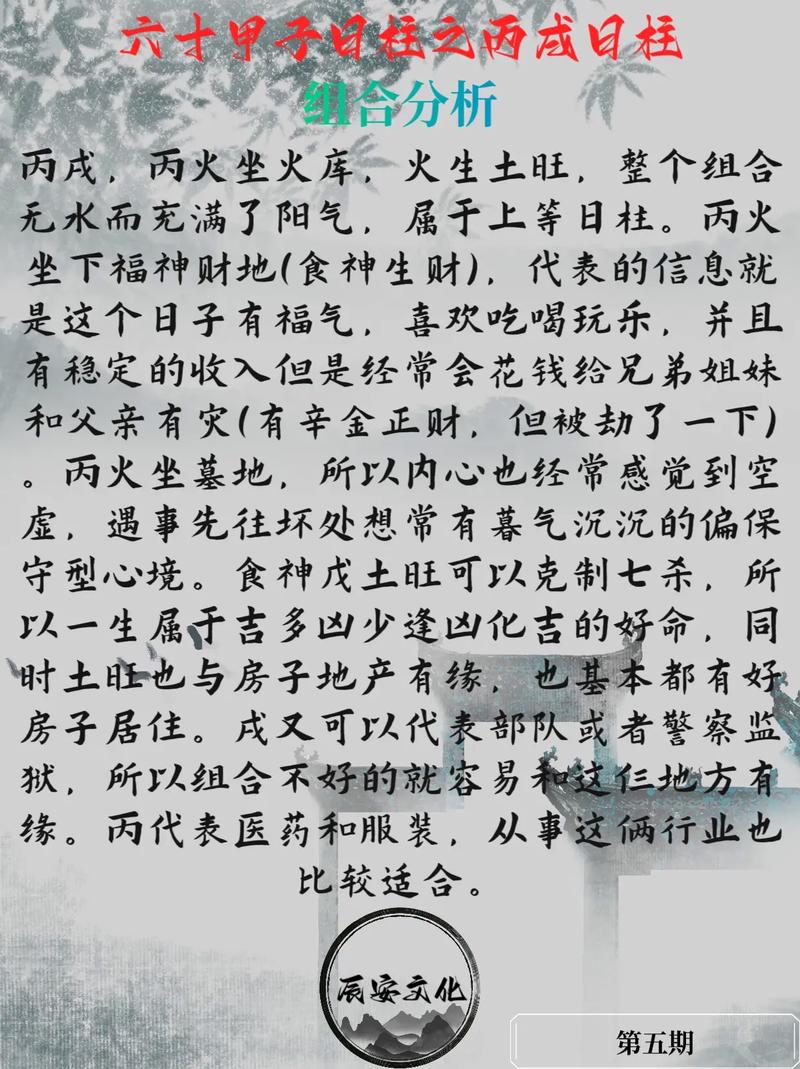 六十甲子日柱之丙戌日柱
组合分析
丙戌，丙火坐火库，火生土旺，整个组合
无水而充满了阳气，属于上等日柱。丙火
坐下福神财地(食神生财)，代表的信息就
是这个日子有福气，喜欢吃喝玩乐，并且
有稳定的收入但是经常会花钱给兄弟姐妹
和父亲有灾(有辛金正财，但被劫了一下)
。丙火坐墓地，所以内心也经常感觉到空
虚，遇事先往坏处想常有暮气沉沉的偏保
守型心境。食神戊土旺可以克制七杀，所
以一生属于吉多凶少逢凶化吉的好命，同
时土旺也与房子地产有缘，也基本都有好
房子居住。戌又可以代表部队或者警察监
狱，所以组合不好的就容易和这仨地方有
缘。丙代表医药和服装，从事这俩行业也
比较适合。
辰安文化
第五期